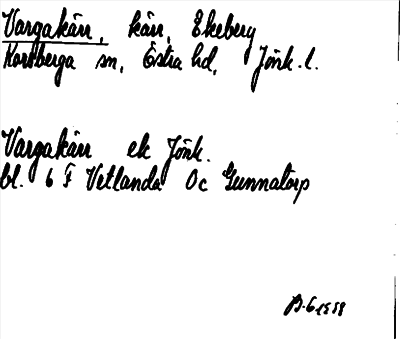 Vargakärr, kärr, Ekeberg
Korsberga sn, Östra hd, Jönk. l.
Vargakärr ek Jönk.
bl. 6 F Vetlanda 0c Gunnatorp